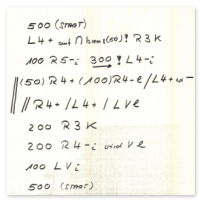 500 (START)
L4+ auf ∩ kreuz(50)! R3K
100 R5-i 300! L4-i
(50) R4+ (100) R4-l / L4+ w-
// R4+ / L4+ / LVl
200 R3K
200 R4-i wird Vl
100 LVi
500 (START)